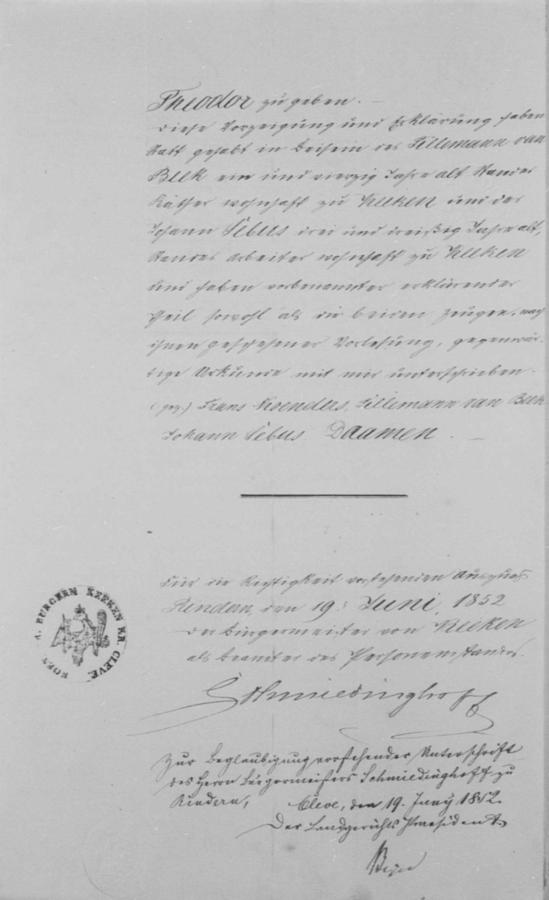 Theodor zu geben. —
Diese Vorzeigung und Erklärung haben
statt gehabt in Beisein des Tillemann van
Beek ein und vierzig Jahre alt Standes
Käther wohnhaft zu Keeken und des
Johann Sebus drei und dreißig Jahre alt,
Standes Arbeiter wohnhaft zu Keeken
und haben vorbenannter erklärender
Theil sowohl als die beiden Zeugen, nach
ihnen geschehener Vorlesung, gegenwär-
tige Urkunde mit mir unterschrieben.
(gez.) Frans Tillemann van Beek
Johann Sebus Daamen. —
Für die Richtigkeit vorstehenden Auszugs
Rindern, den 19. Juni 1852
Der Bürgermeister von Keeken
als Beamter des Personenstandes.
Schmiedinghoff
Zur Beglaubigung vorstehender Unterschrift
des Herrn Bürgermeisters Schmiedinghoff zu
Rindern, Cleve, den 19. Juny 1852.
Der Landgerichts Praesident
A. BURGERM KEEKEN KR. CLEVE